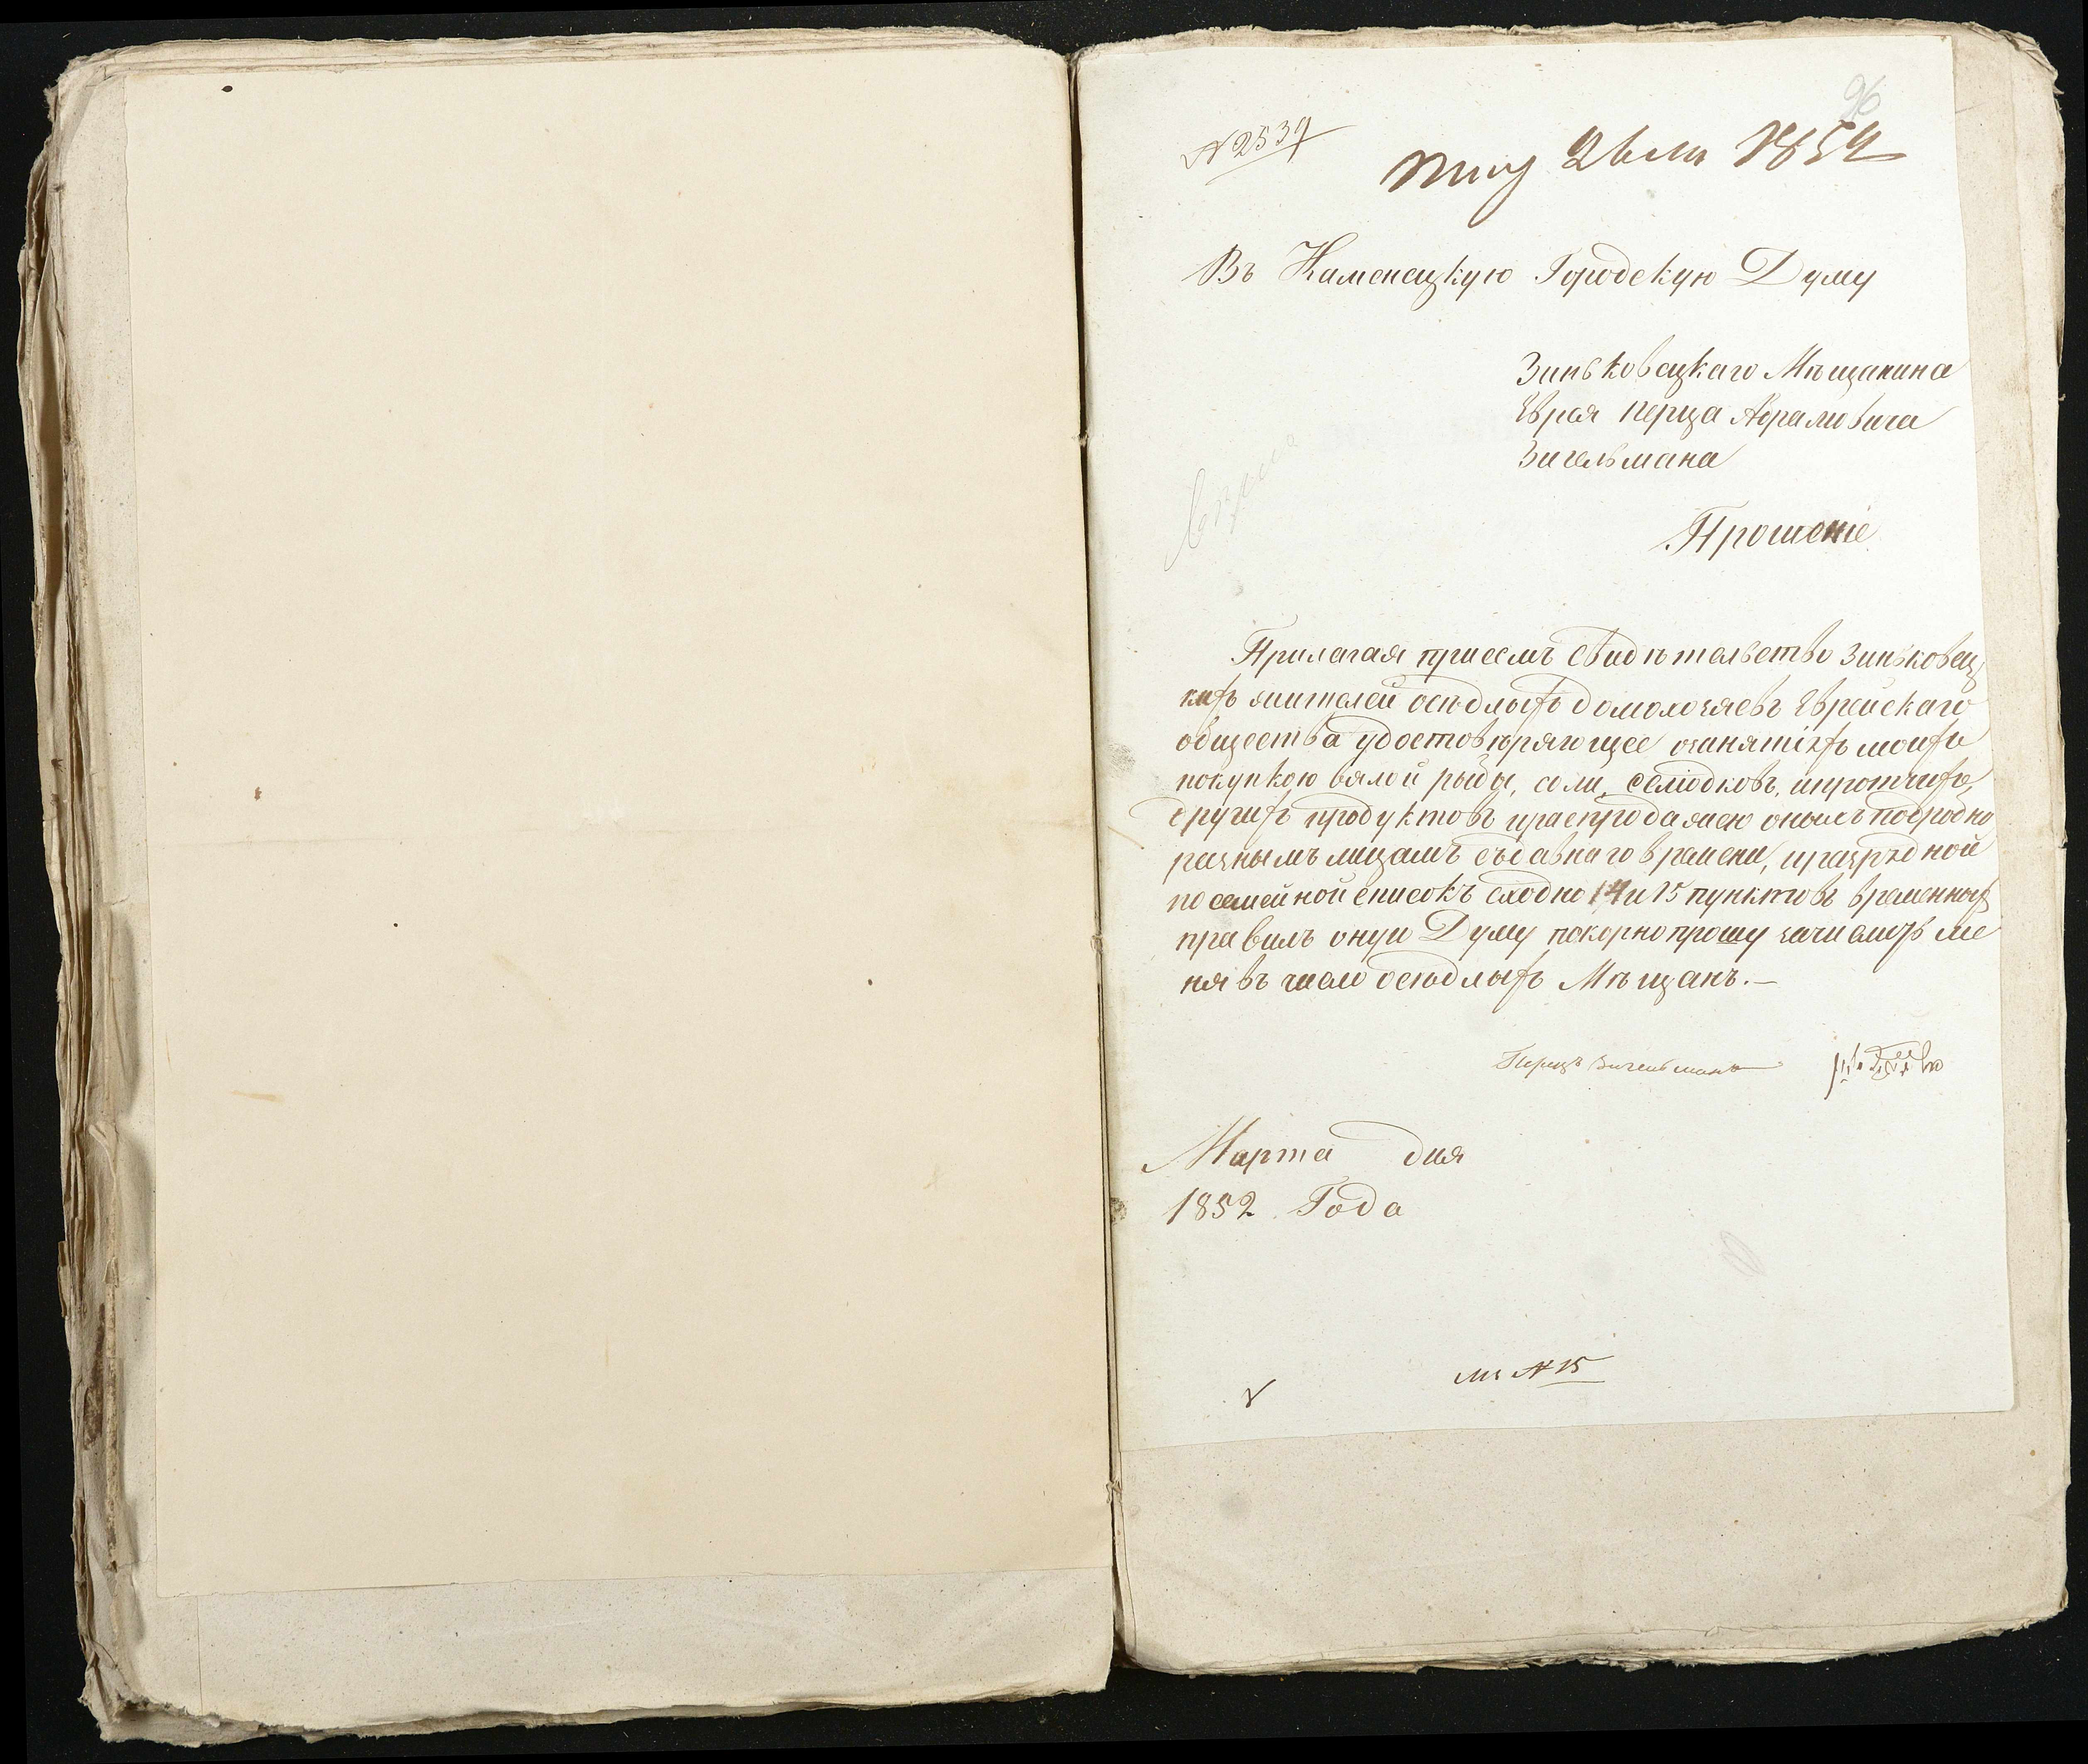 96
№ 2539
1852
Въ Каменецкую Городскую Думу
Зиньковецкаго Мѣщанина
Еврея Перца Аврамовича
Зигельмана
Прошеніе
Прилагая присемъ свидѣтельство Зиньковец
кихъ жителей осѣдлыхъ домохозяевъ Еврейскаго
общества удостовѣряющее озанятіяхъ моихъ
покупкою вялой рыбы, соли, селюдковъ, ипротчихъ
другихъ продуктовъ ираспродажею онымъ подробно
разнымъ лицамъ съдавнаго времени, иразрядной
посемейной списокъ сходно 14 и 15 пунктовъ временныхъ
правилъ оную Думу покорно прошу зачислить ме
ня въ число осѣдлыхъ Мѣщанъ.—
Перецъ Зигельманъ
Марта дня
1852 Года
№ 15